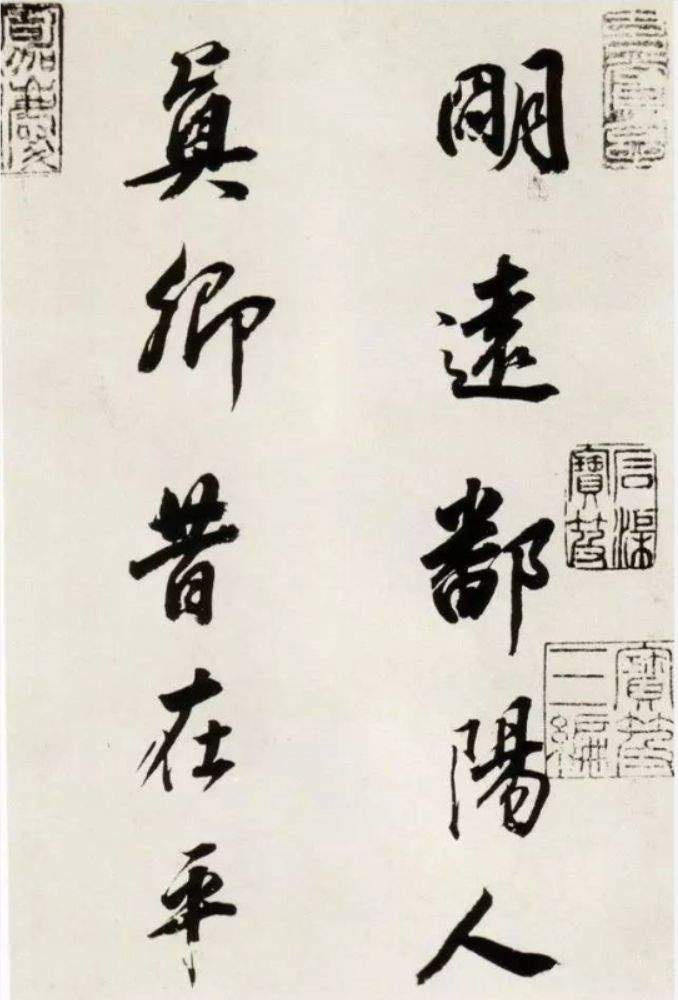 明遠鄱陽人
真卿昔在平
石渠
寶笈
寶笈
三編